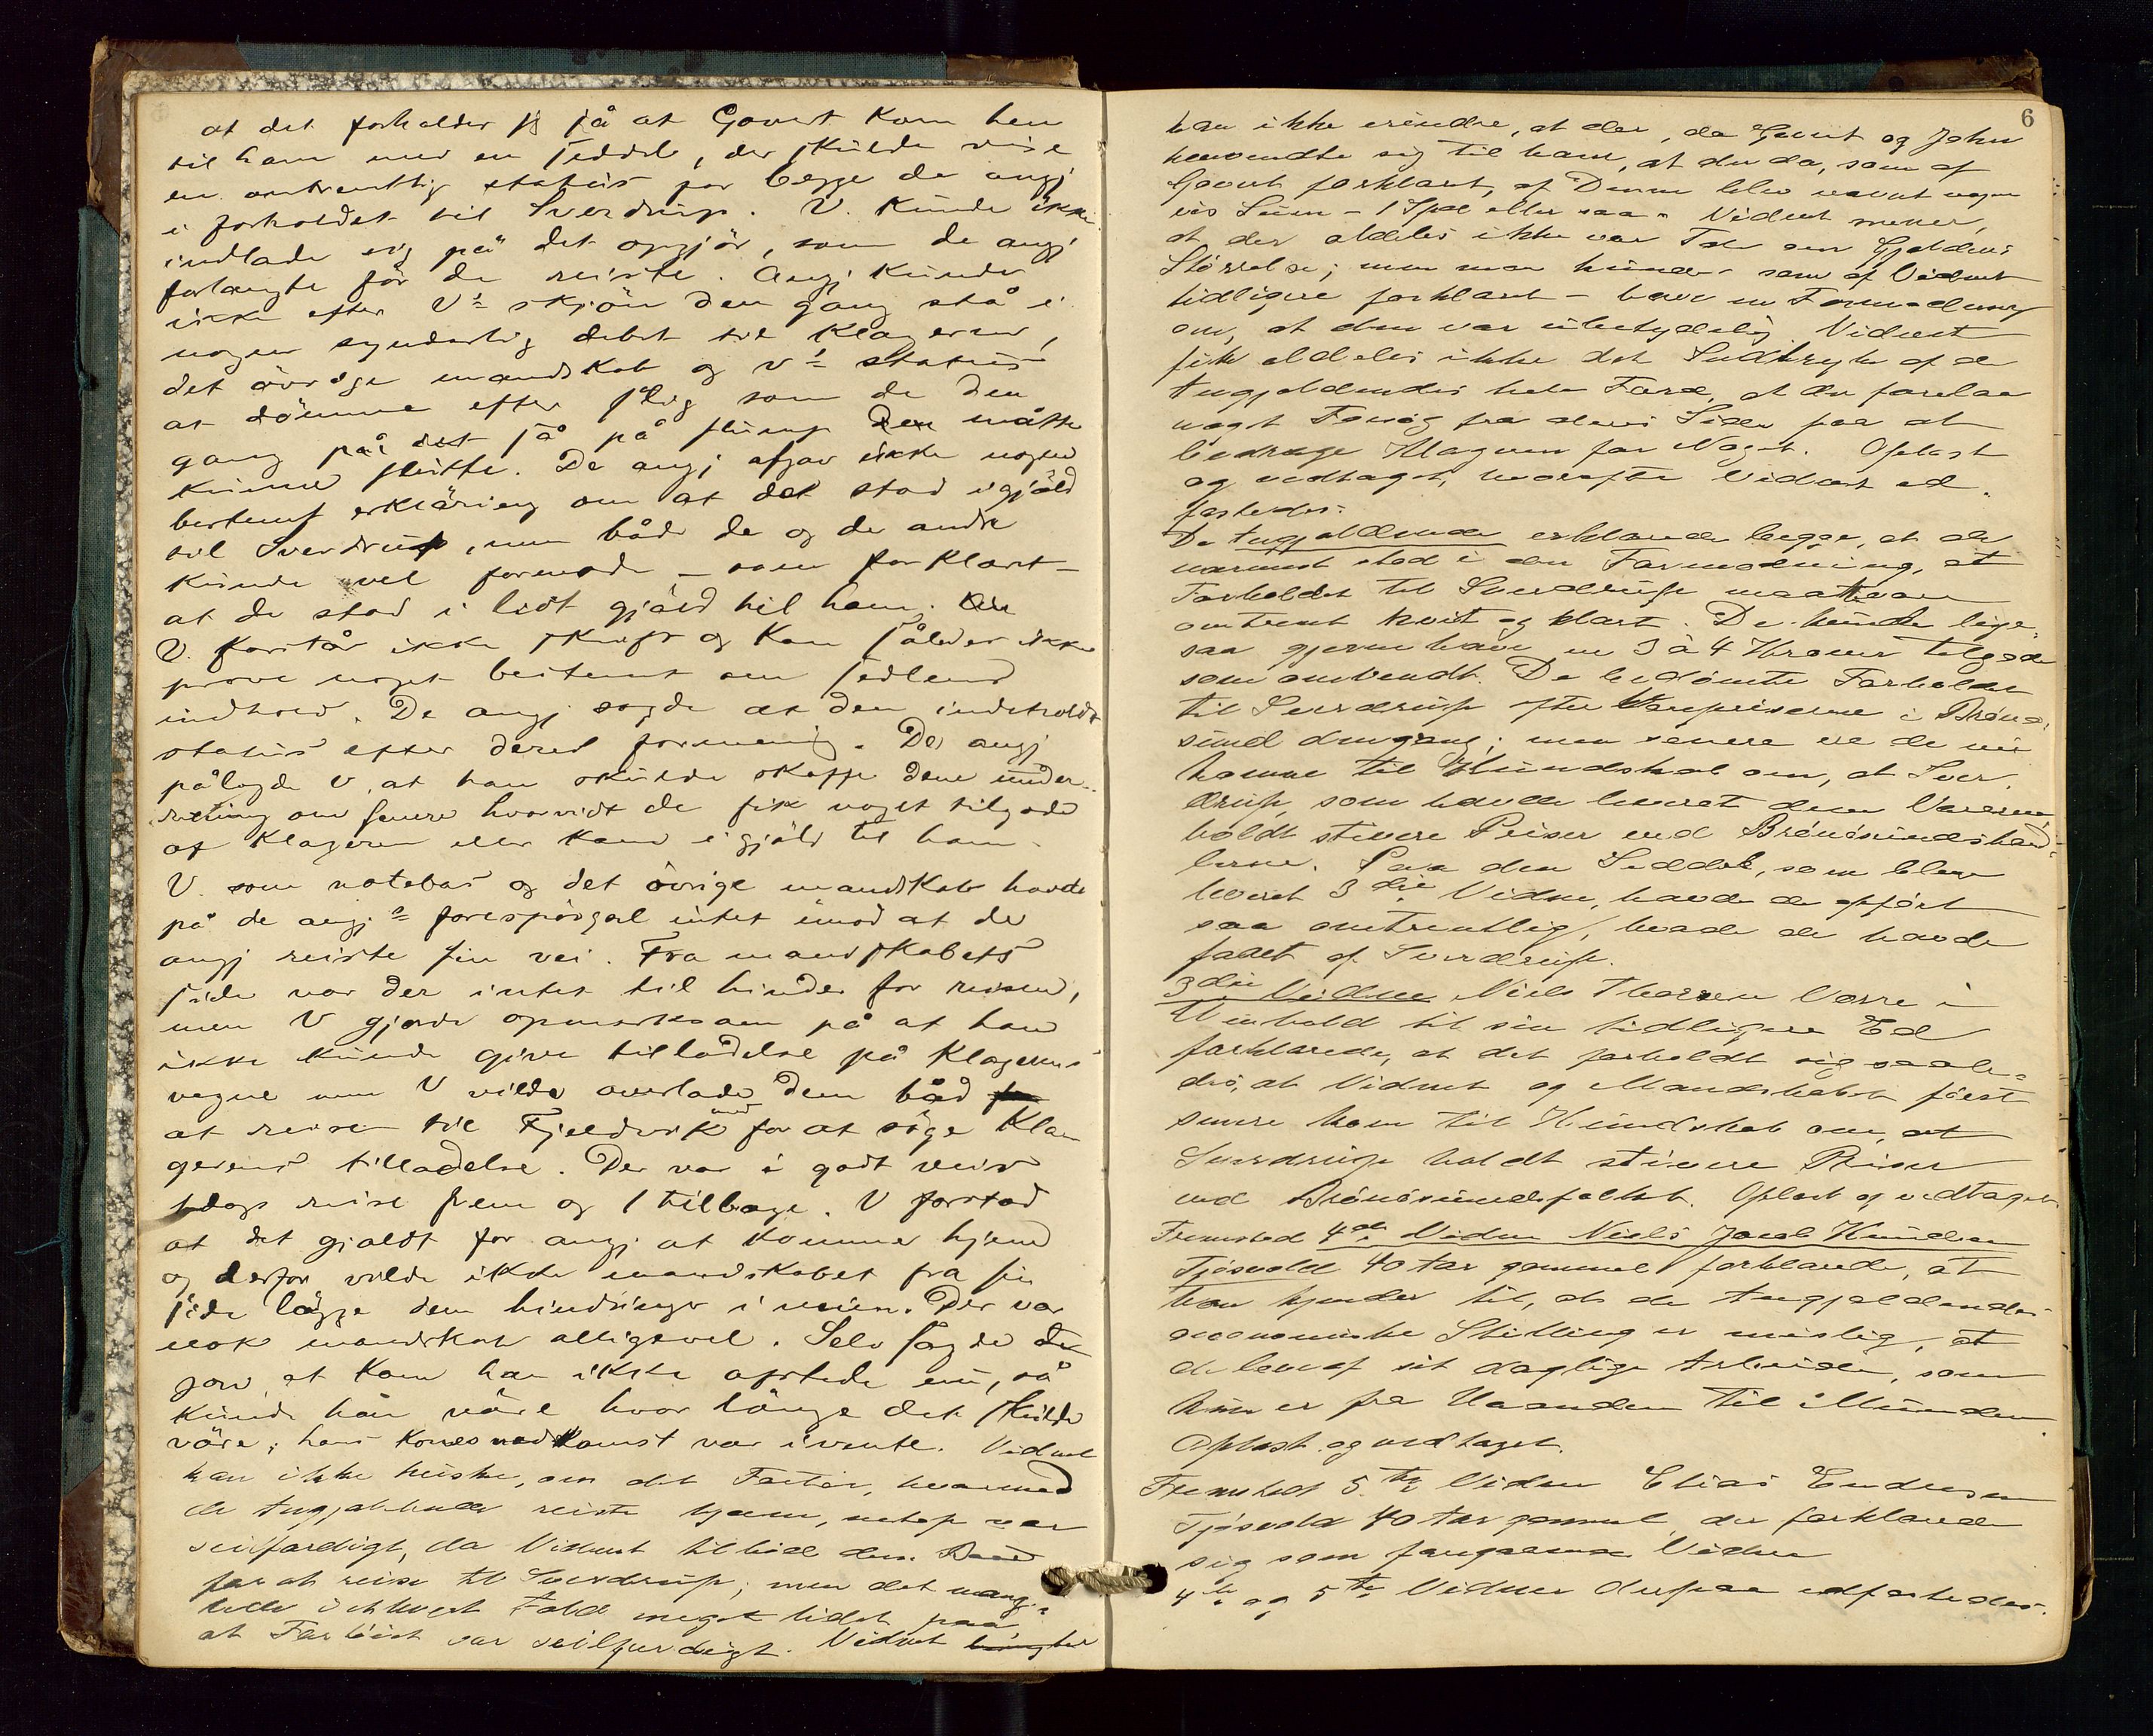 at det forholder sig så at Govert kom hen
til ham med en seddel, der skulde vise
en omtrentlig status for begge de angj
i forholdet til Sverdrup. V. kunde ikke
indlade sig på det opgjör, som de angj
forlangte för de reiste. Angj kunde
ikke efter Vs skjön den gang stå i
nogen synderlig debet til Klageren,
det övrige mandskab og Vs status
at dömme efter slig som de den
gang på det så på slump den måtte
kunne slutte. De angj afgav ikke nogen
bestemt erkläring om at det stod igjäld
til Sverdrup, men både de og de andre
kunde vel formode – som forklart –
at de stod i lidt gjäld til ham.
V. forstår ikke skrift og kan således ikke
prove noget bestemt om sedlens
indhold. De angj sagde at den indeholdt
status efter deres formening. De angj
pålagde V, at han skulde skaffe dem under-
retning om senere hvorvidt de fik noget tilgode
af Klageren eller kom i gjäld til ham.
V. som notebas og det övrige mandskab havde
på de angj.s forespörgsel intet imod at de
angj reiste sin vei. Fra mandskabets
side var der intet til hinder for reisen,
men V gjorde opmerksom på at han
ikke kunde give tilladelse på Klagerens
vegne men V vilde overlade dem båd
at reise til Fjeldvik for at söge Kla-
gerens tilladelse. Der var i godt veir
1 dags reise frem og 1 tilbage. V forstod
at det gjaldt for angj at komme hjem
og derfor vilde ikke mandskabet fra sin
side lägge dem hindringer i veien. Der var
nok mandskab alligevel. Selv sagde
at kom han ikke afstede nu, så
kunde han väre hvor länge det skulde
väre; hans kones nedkomst var ivente. Vidnet
kan ikke huske, om det Fartöi, hvormed
de Angjældende reiste hjem, netop var
seilfærdigt, da Vidnet tilböd dem Baad
for at reise til Sverdrup; men det mang-
lede i ethvert Fald meget lidet paa,
at Fartöiet var seilfærdigt. Vidnet
6
kan ikke erindre, at der, da Govert og John
henvendte sig til ham, at der da, som af
Govert forklart, af Denne blev nævnt nogen
vis Sum – 1 Spd eller saa – Vidnet mener,
at der aldeles ikke var Tale om Gjeldens
Störrelse; men man kunde – som af Vidnet
tidligere forklart – have en Formodning
om, at den var ubetydelig. Vidnet
fik aldeles ikke det Indtryk af de
Angjældendes hele Færd, at der forelaa
noget Forsög fra deres Side paa at
bedrage Klageren for Noget. Oplæst
og vedtaget, hvorefter Vidnet ed-
fæstedes.
De Angjældende erklærede begge, at de
nærmest stod i den Formodning, at
Forholdet til Sverdrup maatte være
omtrent kvit og klart. De kunde lige-
saa gjerne have en 3 à 4 Kroner tilgode
som omvendt. De bedömte Forholdet
til Sverdrup efter Varepriserne i Brönö-
sund dengang; men senere ere de nu
komne til Kundskab om, at Sver-
drup, som havde leveret dem Varerne,
holdt stivere Priser end Brönösundshand-
lerne. Paa den Seddel, som blev
leveret 3die Vidne, havde de opfört
saa omtrentlig, hvad de havde
faaet af Sverdrup.
3die Vidne Niels Thorsen Vorre i
Henhold til sin tidligere Ed
forklarede, at det forholdt sig saale-
des, at Vidnet og Mandskabet först
senere kom til Kundskab om, at
Sverdrup holdt stivere Priser
end Brönösundsfolket. Oplæst og vedtaget.
Fremstod 4de Vidne Niels Jacob Knudsen
Tjösvold 40 Aar gammel forklarede, at
han kjender til, at de Angjældendes
oeconomiske Stilling er mislig, at
de lever af sit daglige Arbeide, som
kun er fra Haanden til Munden.
Oplæst og vedtaget.
Fremstod 5te Vidne Elias Endresen
Tjösvold 40 Aar gammel, der forklarede
sig som foregaaende Vidne
4de og 5te Vidner derpaa edfæstedes.